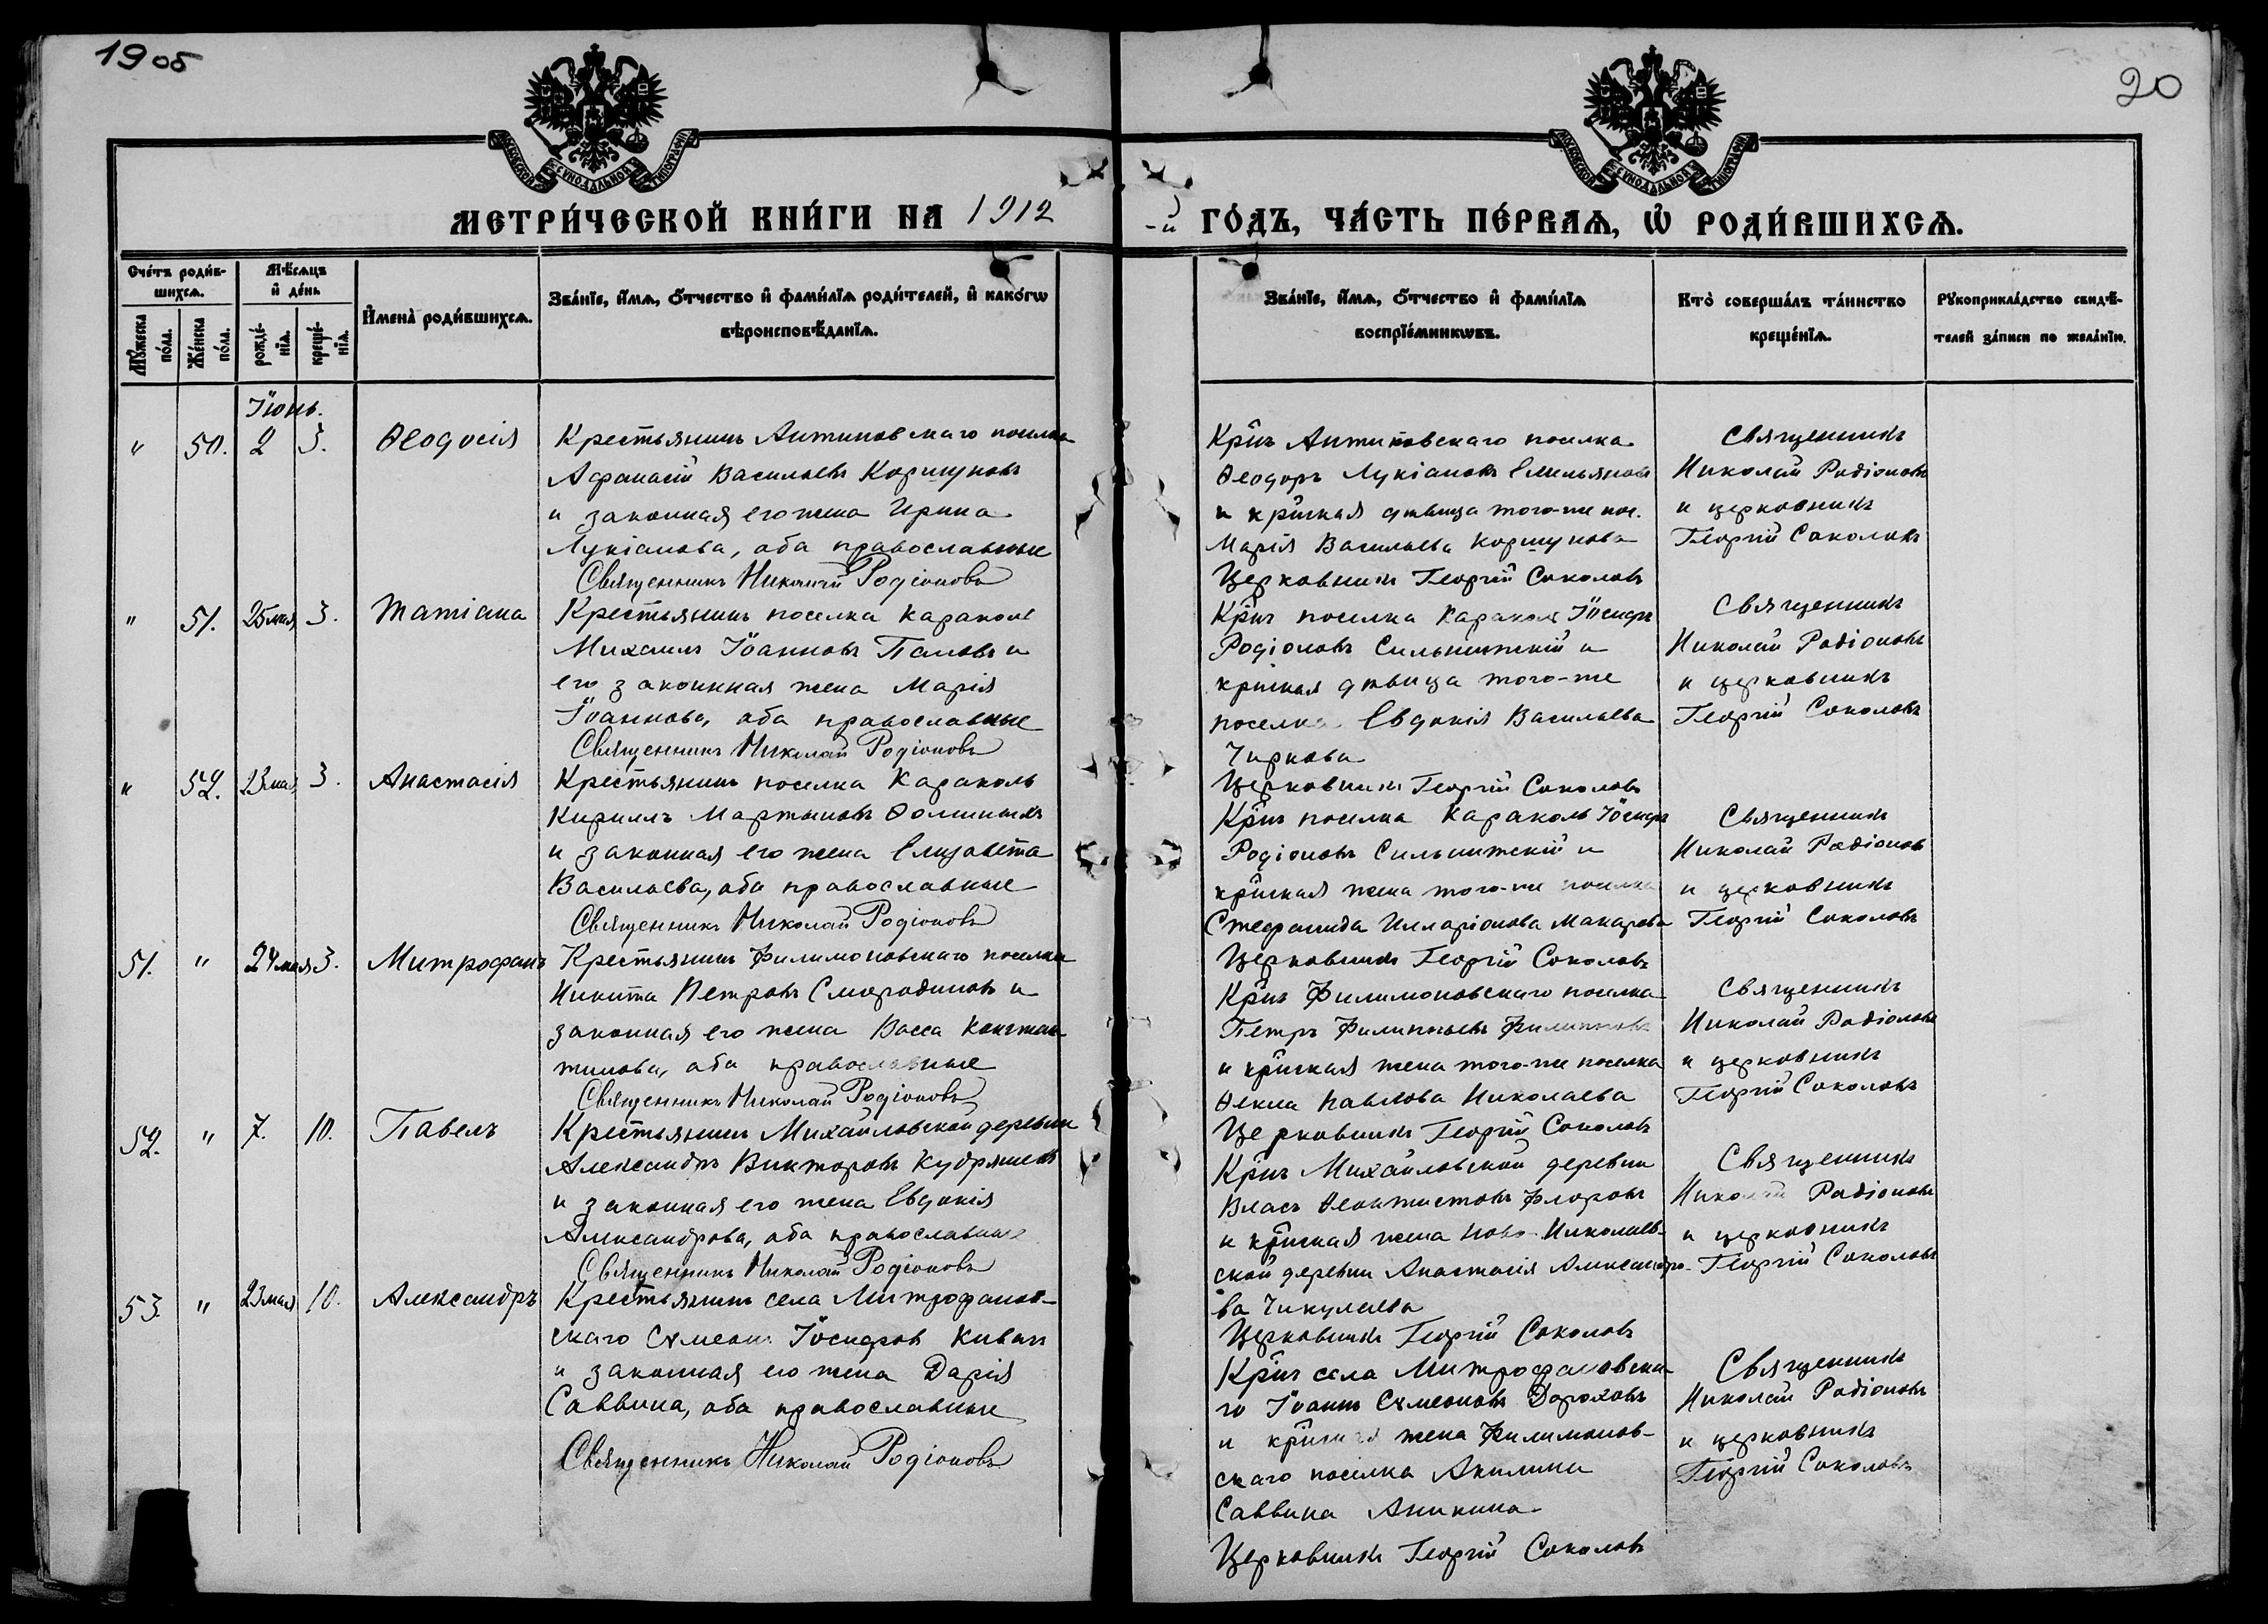 1905
20
МОСКОВСКОЙ СѴНОДАЛЬНОЙ ТИПОГРАФІИ
МОСКОВСКОЙ СѴНОДАЛЬНОЙ ТИПОГРАФІИ
МЕТРИ́ЧЕСКОЙ КНИ́ГИ НА 1912
-й ГО́ДЪ, ЧА́СТЬ ПЕ́РВАѦ, Ѡ҆ РОДИ́ВШИХСѦ.
Сче́тъ роди́в-
шихсѧ.
Мѣ́сѧцъ
и҆ де́нь
Мꙋ́жеска
по́ла.
Же́нска
по́ла.
рожде́-
нїѧ.
креще́-
нїѧ.
И҆мена̀ роди́вшихсѧ.
Зва́нїе, и҆́мѧ, о҆́тчество и҆ фами́лїѧ роди́телей, и҆ како́гѡ
вѣроисповѣ́данїѧ.
Зва́нїе, и҆́мѧ, о҆́тчество и҆ фами́лїѧ
воспрїе́мникѡвъ.
Кто̀ соверша́лъ та́инство
креще́нїѧ.
Рꙋкоприкла́дство свидѣ́-
телей за́писи по жела́нїю.
Іюнь.
" 50. 2 3. Ѳеодосія
Крестьянинъ Антиповскаго поселка
Афанасій Васильевъ Коршуновъ
и законная его жена Ирина
Лукіанова, оба православные
Священникъ Николай Родіоновъ
Кр͞нъ Антиповскаго поселка
Ѳеодоръ Лукіановъ Емельяновъ
и кр͞нская дѣвица того-же пос.
Марія Васильева Коршунова
Церковникъ Георгій Соколовъ
Священникъ
Николай Родіоновъ
и церковникъ
Георгій Соколовъ
" 51. 25 мая 3. Татіана
Крестьянинъ поселка Караколь
Михаилъ Іоанновъ Поповъ и
его законная жена Марія
Іоаннова, оба православные
Священникъ Николай Родіоновъ
Кр͞нъ поселка Караколь Іосифъ
Родіоновъ Сильнитскій и
кр͞нская дѣвица того-же
поселка Евдокія Васильева
Чиркова
Церковникъ Георгій Соколовъ
Священникъ
Николай Родіоновъ
и церковникъ
Георгій Соколовъ
" 52. 23 мая 3. Анастасія
Крестьянинъ поселка Караколь
Кириллъ Мартыновъ Ѳоминыхъ
и законная его жена Елизавета
Васильева, оба православные
Священникъ Николай Родіоновъ
Кр͞нъ поселка Караколь Іосифъ
Родіоновъ Сильнитскій и
кр͞нская жена того-же поселка
Стефанида Илларіонова Макарова
Церковникъ Георгій Соколовъ
Священникъ
Николай Родіоновъ
и церковникъ
Георгій Соколовъ
51. " 24 мая 3. Митрофанъ
Крестьянинъ Филимоновскаго поселка
Никита Петровъ Смородиновъ и
законная его жена Васса Констан
тинова, оба православные
Священникъ Николай Родіоновъ
Кр͞нъ Филимоновскаго поселка
Петръ Филипповъ Филипповъ
и кр͞нская жена того-же поселка
Ѳекла Павлова Николаева
Церковникъ Георгій Соколовъ
Священникъ
Николай Родіоновъ
и церковникъ
Георгій Соколовъ
52. " 7. 10. Павелъ
Крестьянинъ Михайловской деревни
Александръ Викторовъ Кудряшевъ
и законная его жена Евдокія
Александрова, оба православные
Священникъ Николай Родіоновъ
Кр͞нъ Михайловской деревни
Власъ Ѳеоктистовъ Флоровъ
и кр͞нская жена Ново-Николаев-
ской деревни Анастасія Александро-
ва Чикулаева
Церковникъ Георгій Соколовъ
Священникъ
Николай Родіоновъ
и церковникъ
Георгій Соколовъ
53. " 23 мая 10. Александръ
Крестьянинъ села Митрофанов-
скаго Сѵмеонъ Іосифовъ Киван
и законная его жена Дарія
Саввина, оба православные
Священникъ Николай Родіоновъ
Кр͞нъ села Митрофановска
го Іоаннъ Сѵмеоновъ Дороховъ
и кр͞нская жена Филимонов-
скаго поселка Акилина
Саввина Аникина
Церковникъ Георгій Соколовъ
Священникъ
Николай Родіоновъ
и церковникъ
Георгій Соколовъ